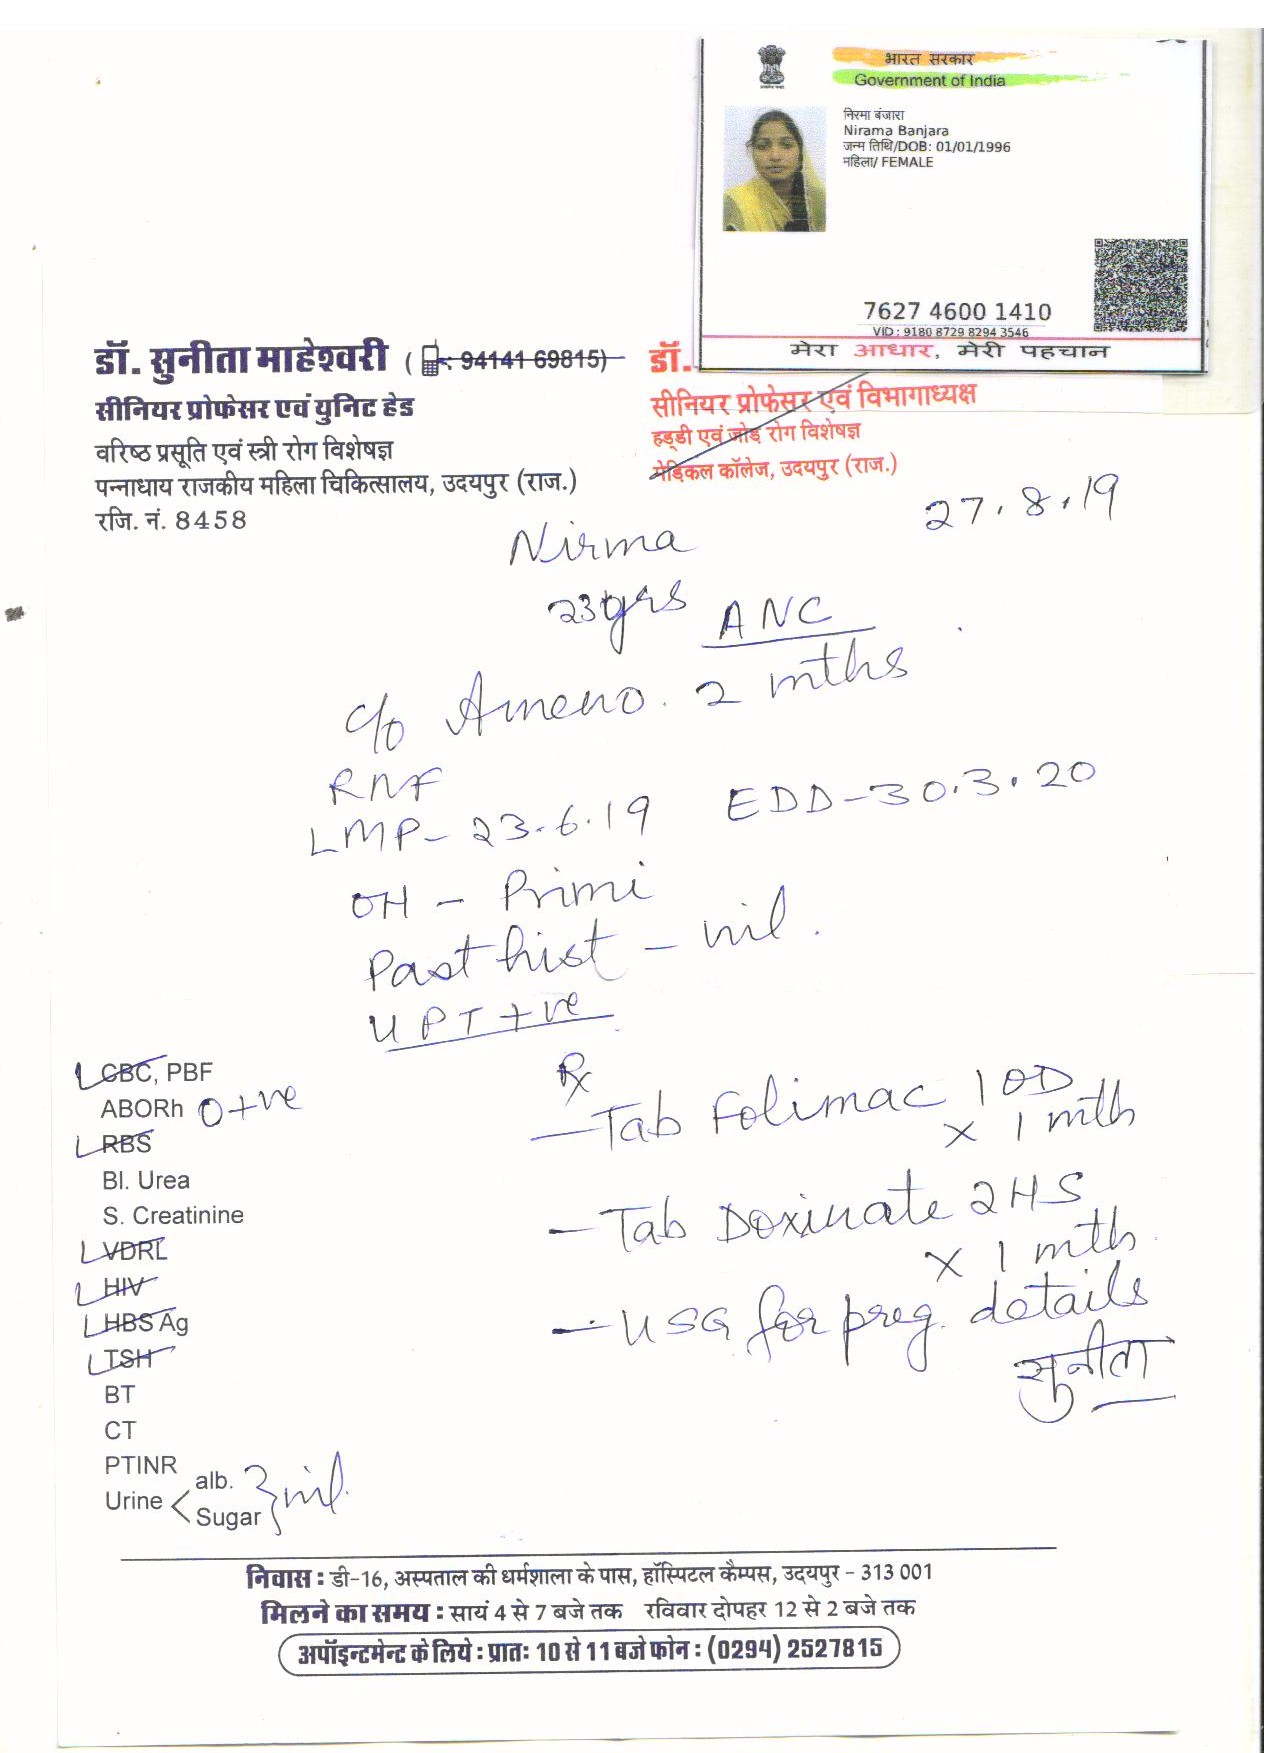 भारत सरकार
Government of India
निरमा बंजारा
Nirama Banjara
जन्म तिथि/DOB: 01/01/1996
महिला/ FEMALE
7627 4600 1410
VID : 9180 8729 8294 3546
मेरा आधार, मेरी पहचान
डॉ. सुनीता माहेश्वरी ( : 94141 69815)
सीनियर प्रोफेसर एवं युनिट हेड
वरिष्ठ प्रसूति एवं स्त्री रोग विशेषज्ञ
पन्नाधाय राजकीय महिला चिकित्सालय, उदयपुर (राज.)
रजि. नं. 8458
डॉ.
सीनियर प्रोफेसर एवं विभागाध्यक्ष
हड्डी एवं जोड़ रोग विशेषज्ञ
मेडिकल कॉलेज, उदयपुर (राज.)
27.8.19
Nirma
23yrs ANC
c/o Ameno. 2 mths
RNF
LMP- 23.6.19 EDD-30.3.20
OH - Primi
Past hist - nil.
UPT +ve
CBC, PBF
ABORh O+ve
RBS
Bl. Urea
S. Creatinine
VDRL
HIV
HBS Ag
TSH
BT
CT
PTINR
Urine < alb.
Sugar } nil.
Rx
- Tab Folimac 1 OD
x 1 mth
- Tab Doxinate 2HS
x 1 mth.
- USG for preg. details
सुनीता
निवास : डी-16, अस्पताल की धर्मशाला के पास, हॉस्पिटल कैम्पस, उदयपुर - 313 001
मिलने का समय : सायं 4 से 7 बजे तक रविवार दोपहर 12 से 2 बजे तक
अपॉइन्टमेन्ट के लिये : प्रातः 10 से 11 बजे फोन : (0294) 2527815